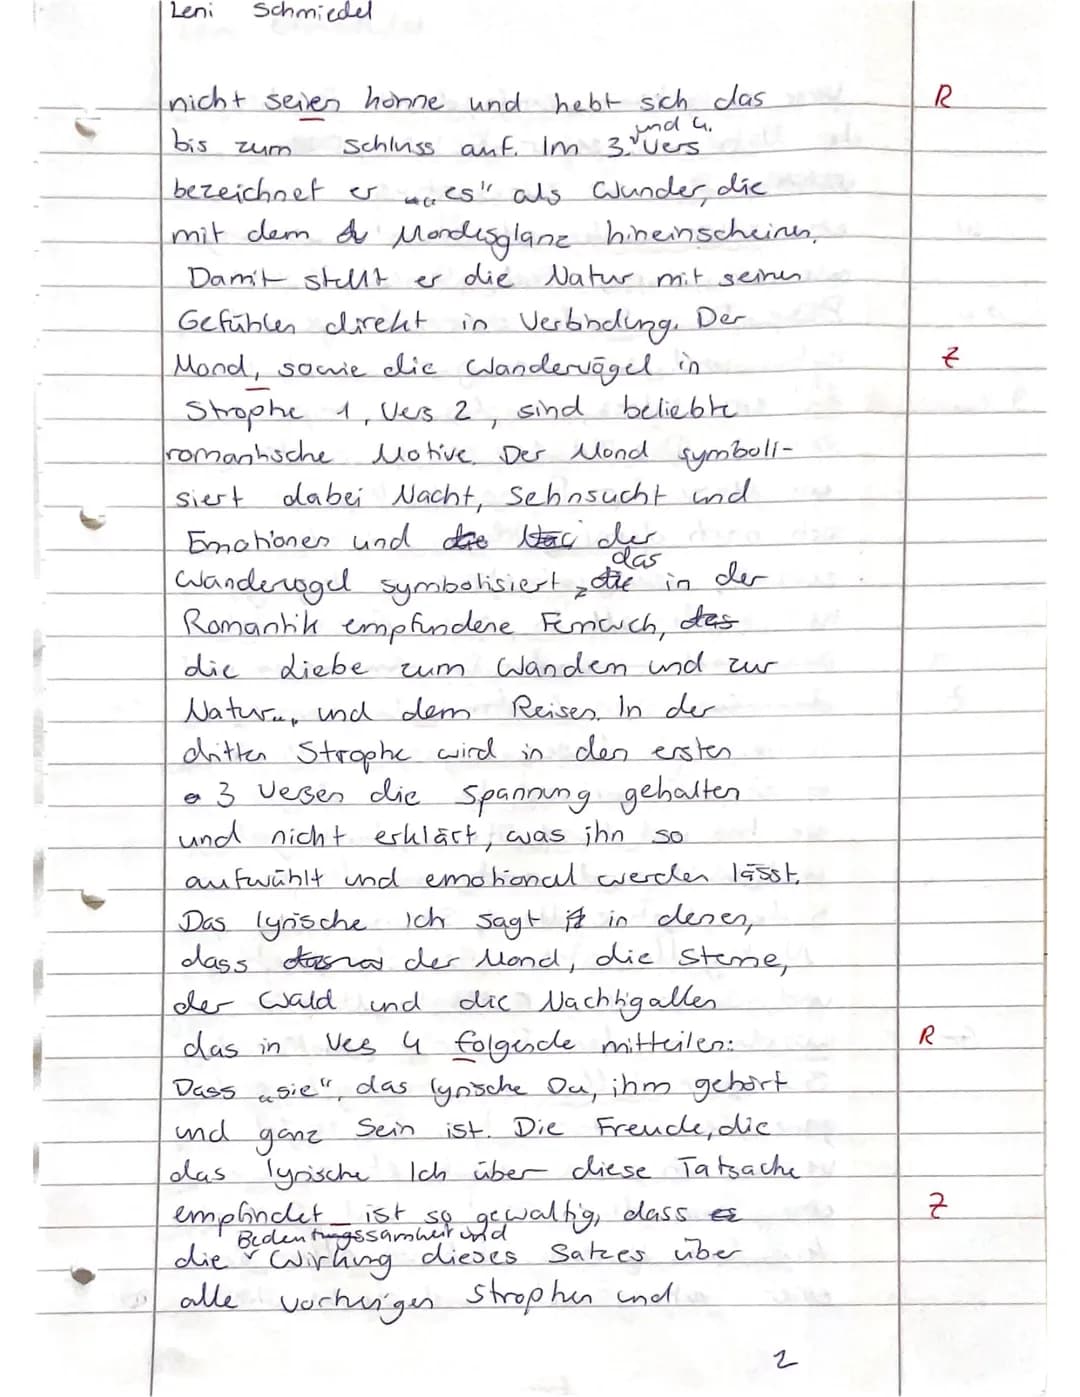 Leni Schmiedel
nicht seien könne und hebt sich das R
bis zum Schluss auf. Im 3. und 4. Vers
bezeichnet er „es" als Wunder, die
mit dem Mondesglanz hineinscheinen.
Damit stellt er die Natur mit seinen
Gefühlen direkt in Verbindung. Der
Mond, sowie die Wandervögel in Z
Strophe 1, Vers 2, sind beliebte
romantische Motive. Der Mond symboli-
siert dabei Nacht, Sehnsucht und
Emotionen und der
Wandervogel symbolisiert, das in der
Romantik empfundene Fernweh, das
die Liebe zum Wandern und zur
Natur und dem Reisen. In der
dritten Strophe wird in den ersten
3 Versen die Spannung gehalten
und nicht erklärt, was ihn so
aufwühlt und emotional werden lässt.
Das lyrische Ich sagt in denen,
dass der Mond, die Sterne,
der Wald und die Nachtigallen
das in Vers 4 folgende mitteilen: R
Dass „sie", das lyrische Du, ihm gehört
und ganz Sein ist. Die Freude, die
das lyrische Ich über diese Tatsache
empfindet ist so gewaltig, dass es Z
die Bedeutungssamkeit und Wirkung dieses Satzes über
alle vorherigen Strophen und
2